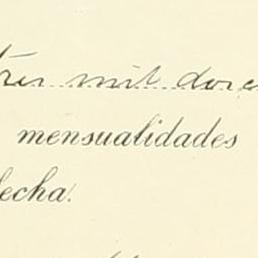 tres mil doce
mensualidades
fecha.